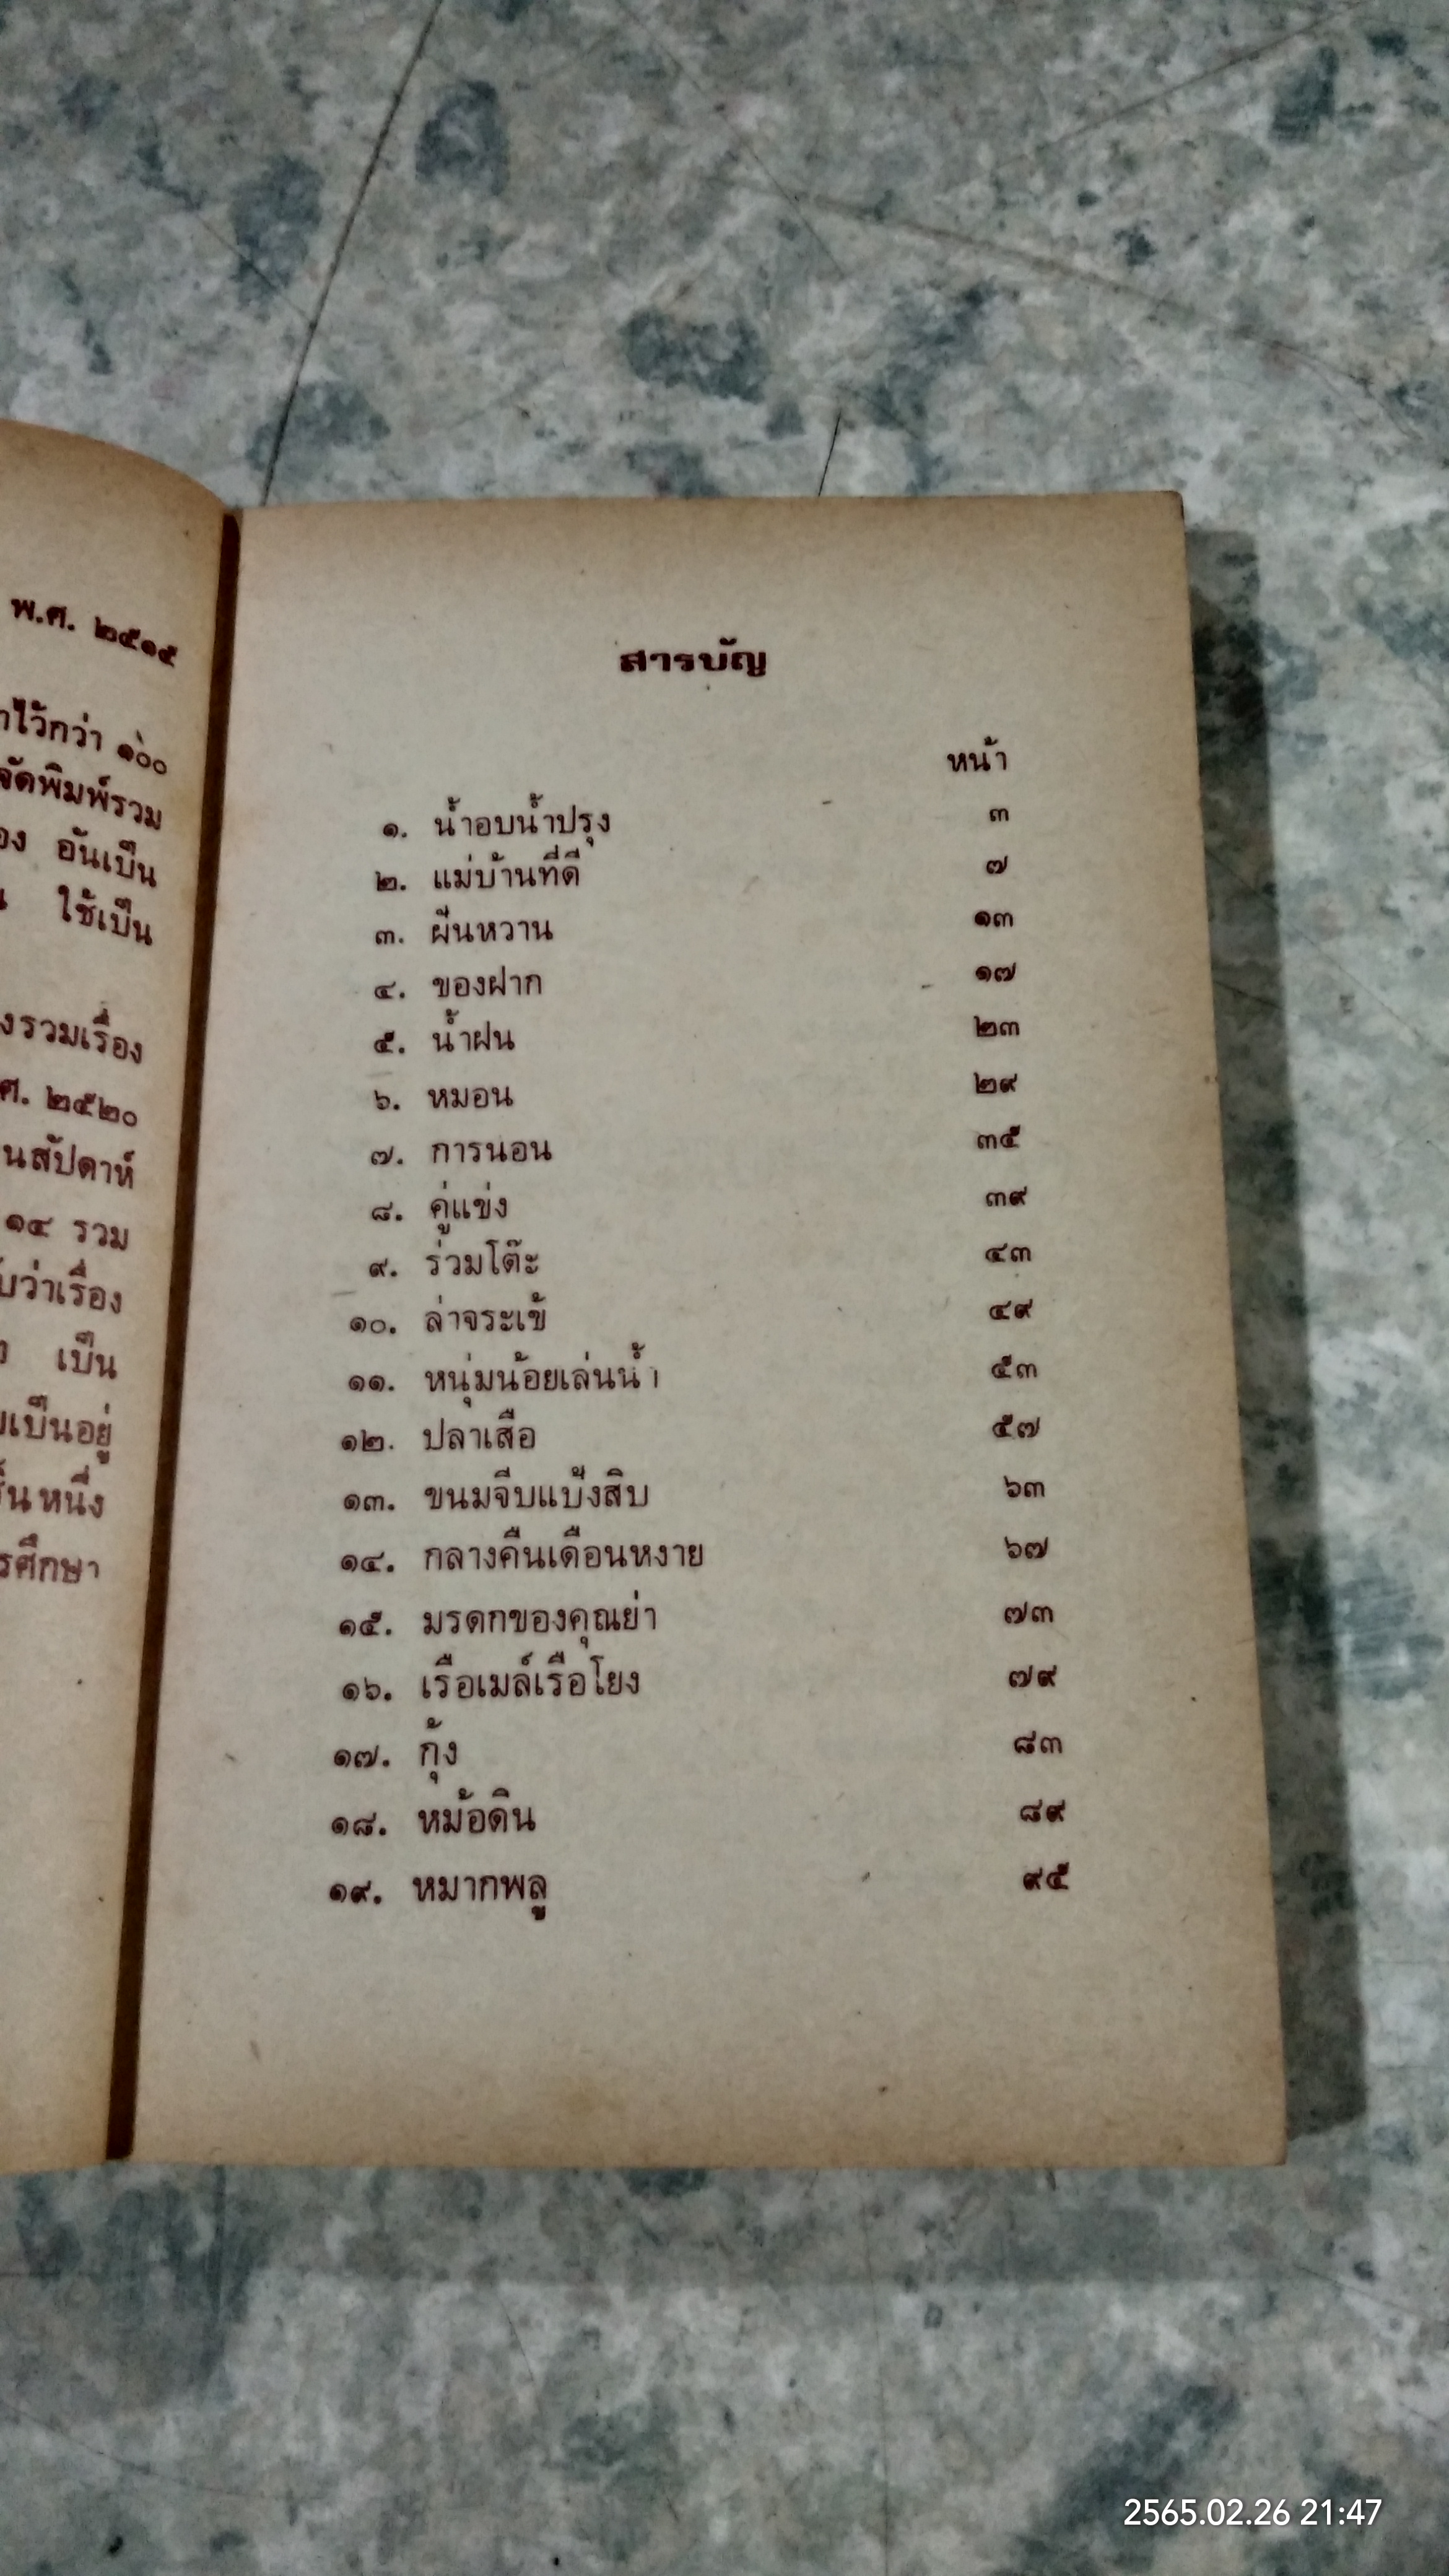 พ.ศ. ๒๕๑๕
ไว้กว่า ๑๐๐
จัดพิมพ์รวม
อันเป็น
ใช้เป็น
รวมเรื่อง
ศ. ๒๕๒๐
สัปดาห์
๑๔ รวม
ว่าเรื่อง
เป็น
เป็นอยู่
หนึ่ง
ศึกษา
สารบัญ
หน้า
๑. น้ำอบน้ำปรุง ๓
๒. แม่บ้านที่ดี ๗
๓. ผีนหวาน ๑๓
๔. ของฝาก ๑๗
๕. น้ำฝน ๒๓
๖. หมอน ๒๙
๗. การนอน ๓๕
๘. คู่แข่ง ๓๙
๙. ร่วมโต๊ะ ๔๓
๑๐. ล่าจระเข้ ๔๙
๑๑. หนุ่มน้อยเล่นน้ำ ๕๓
๑๒. ปลาเสือ ๕๗
๑๓. ขนมจีบแป้งสิบ ๖๓
๑๔. กลางคืนเดือนหงาย ๖๗
๑๕. มรดกของคุณย่า ๗๓
๑๖. เรือเมล์เรือโยง ๗๙
๑๗. กุ้ง ๘๓
๑๘. หม้อดิน ๘๙
๑๙. หมากพลู ๙๕
2565.02.26 21:47